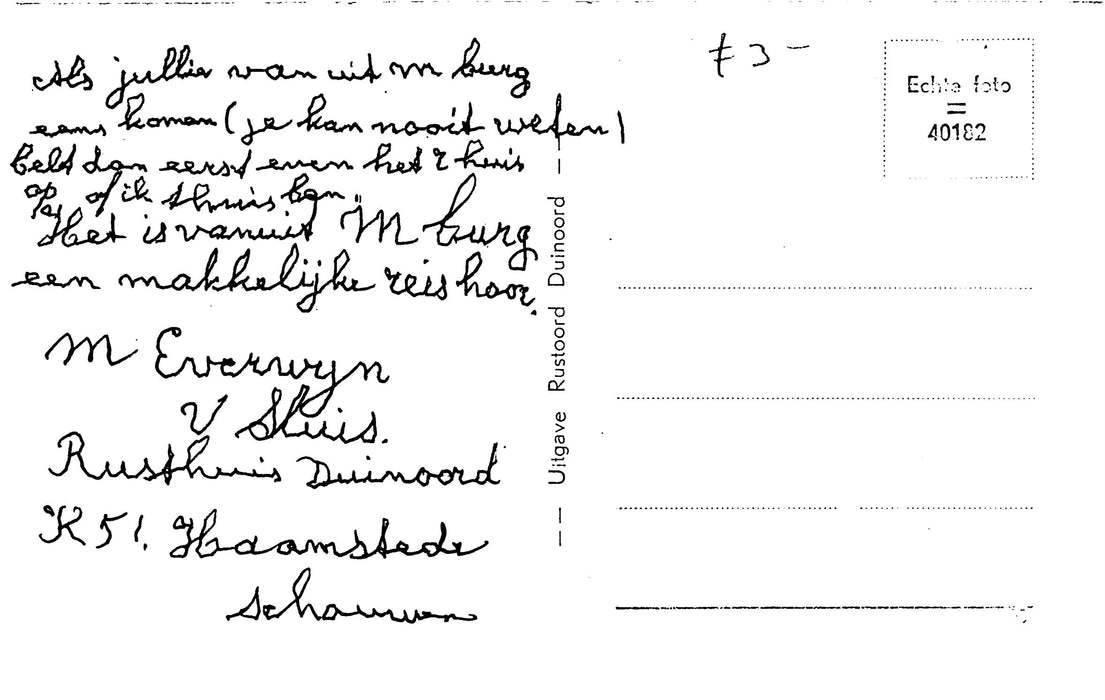 Als jullie van uit M burg
eens komen (je kan nooit weten)
belt dan eerst even het r huis
op of ik thuis ben.
Het is vanuit M burg
een makkelijke reis hoor.
M Everwyn
V Sluis.
Rusthuis Duinoord
K 51. Haamstede
Schouwen
-- Uitgave Rustoord Duinoord --
F 3 -
Echte foto
=
40182